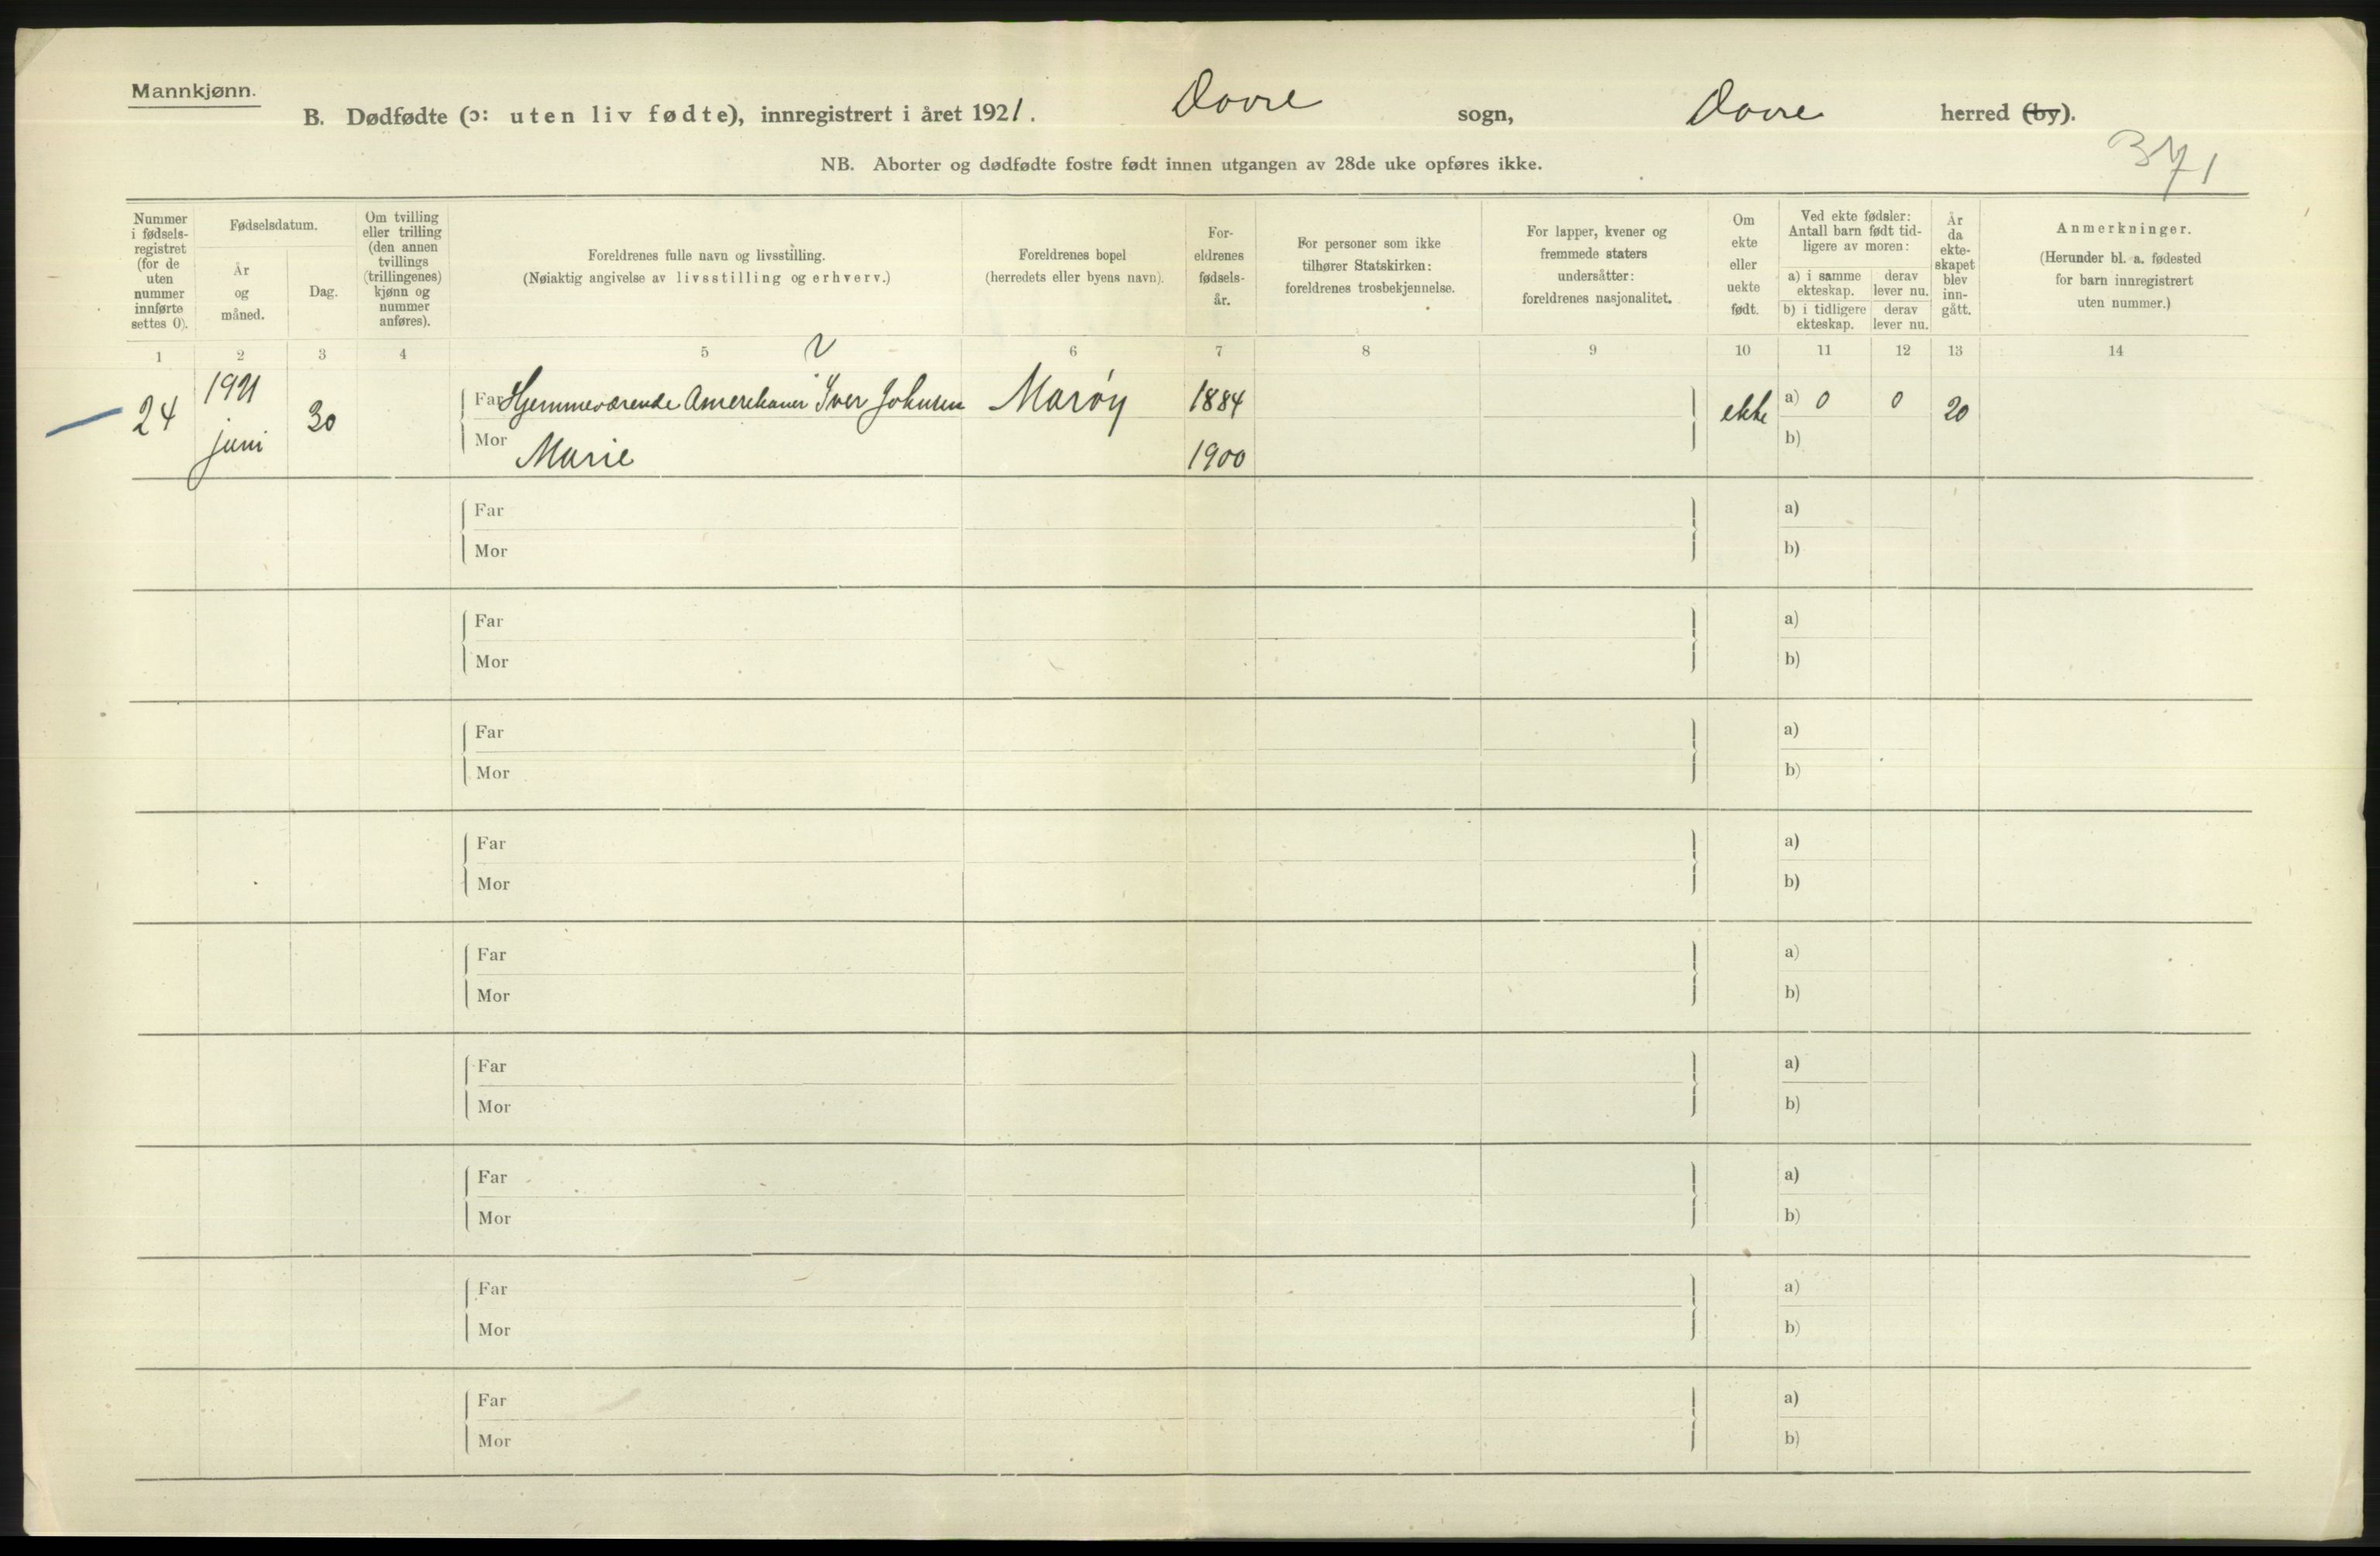 Mannkjønn.
B. Dødfødte (ɔ: uten liv fødte), innregistrert i året 1921. Dovre sogn, Dovre herred (by).
371
NB. Aborter og dødfødte fostre født innen utgangen av 28de uke opføres ikke.
Nummer i fødsels-registret (for de uten nummer innførte settes 0).
Fødselsdatum.
År og måned.
Dag.
Om tvilling eller trilling (den annen tvillings (trillingenes) kjønn og nummer anføres).
Foreldrenes fulle navn og livsstilling.
(Nøiaktig angivelse av livsstilling og erhverv.)
Foreldrenes bopel
(herredets eller byens navn).
For-eldrenes fødsels-år.
For personer som ikke tilhører Statskirken: foreldrenes trosbekjennelse.
For lapper, kvener og fremmede staters undersåtter: foreldrenes nasjonalitet.
Om ekte eller uekte født.
Ved ekte fødsler: Antall barn født tid-ligere av moren:
a) i samme ekteskap.
derav lever nu.
b) i tidligere ekteskap.
derav lever nu.
År da ekte-skapet blev inn-gått.
Anmerkninger.
(Herunder bl. a. fødested for barn innregistrert uten nummer.)
1 2 3 4 5 6 7 8 9 10 11 12 13 14
24 1921 juni 30
Far Hjemmeværende Amerikaner Iver Johnsen 1884 ekte a) 0 0 20
Mor Marie 1900 b)
Far a)
Mor b)
Far a)
Mor b)
Far a)
Mor b)
Far a)
Mor b)
Far a)
Mor b)
Far a)
Mor b)
Far a)
Mor b)
Far a)
Mor b)
Far a)
Mor b)